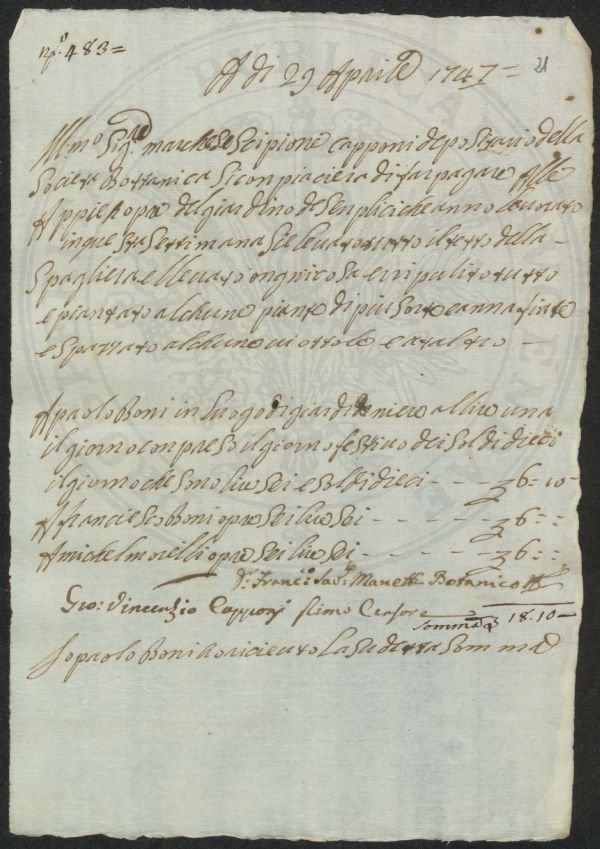 nº. 483=
21
A di 29 Aprile 1747=
Ill:mo Sig:re marchese Scipione capponi depositario della
Società Bottanica Si conpiacierà di far pagare Alle
Appiè hopre del giardino de Senplici che anno lavorato
in questa Settimana
Spagliera e llevato ongni cosa e rripulito tutto
e piantato alchune piante di più Sorte e annafiate
e Spazzato alchune viottole e ataltro
A paolo Boni in luogo di giardiniere a llire una
il giorno conpreso il giorno festivo dei Soldi dieci
il giorno che Sono lire Sei e Soldi dieci - - - 6= 10-
A franciesco Boni opre Sei lire Sei - - - - 6=:
A michel morelli opre Sei lire Sei - - - - 6=:
Dr. Franc:o Sav:o Manetti Botanico
Gio: Vincenzio Capponi Primo Censore
Somma 18.10=
Io paolo Boni ho ricieuto La Sudetta Somma